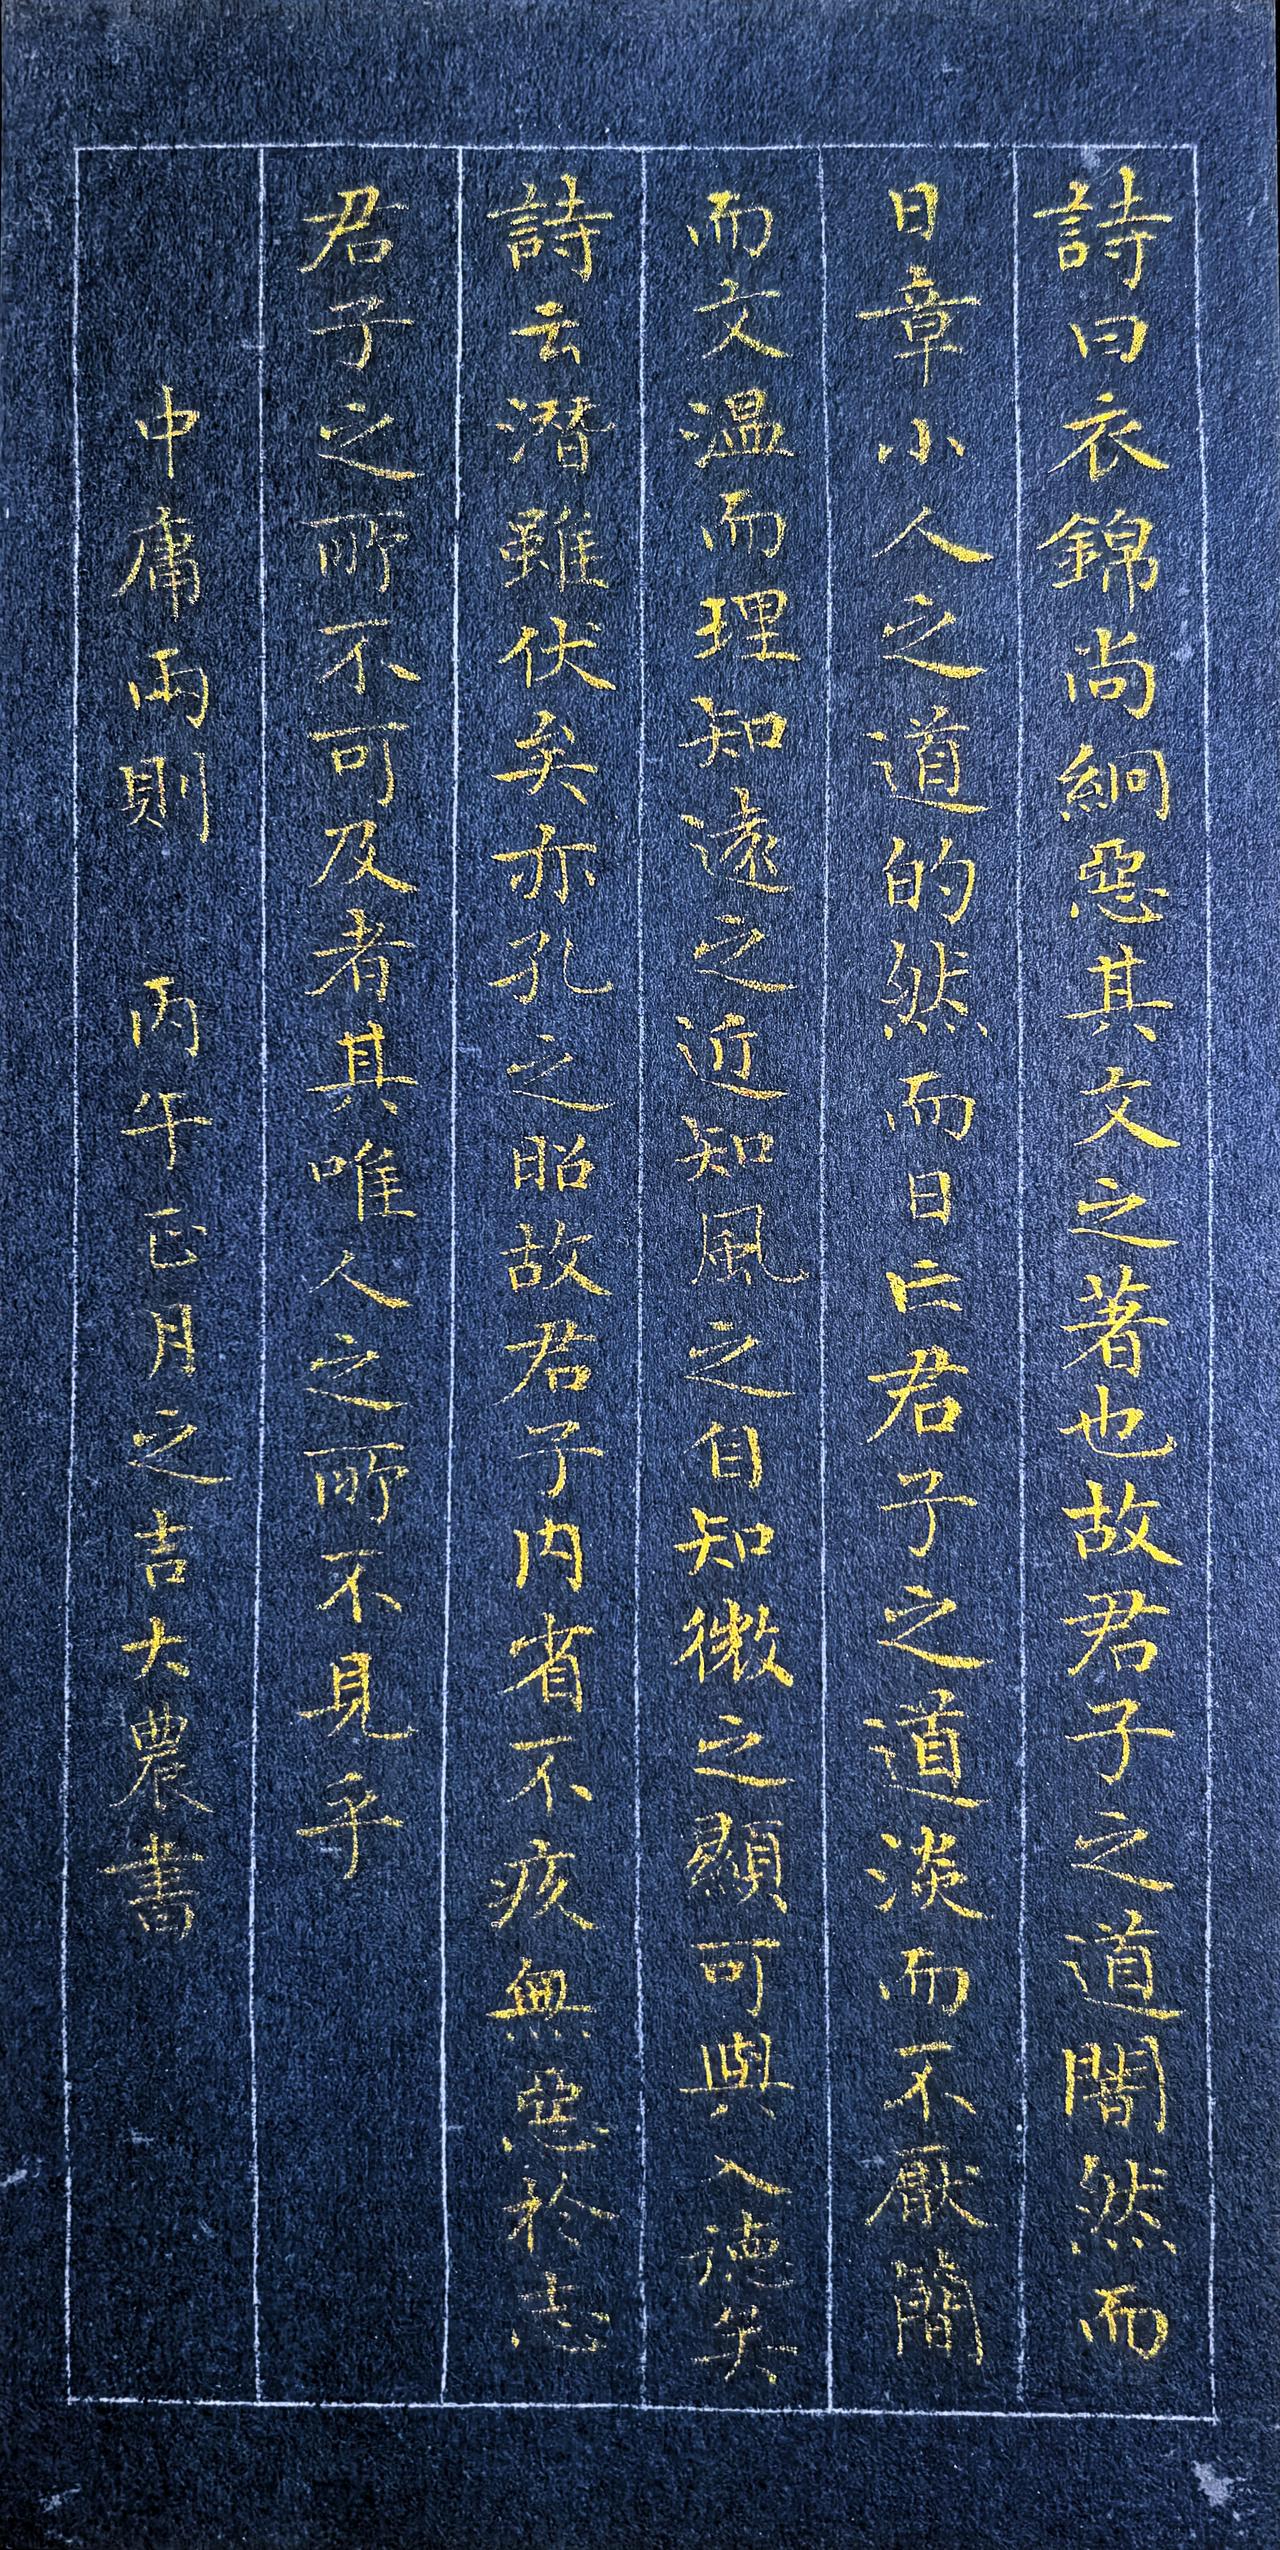 詩曰衣錦尚絅惡其文之著也故君子之道闇然而
日章小人之道的然而日亡君子之道淡而不厭簡
而文溫而理知遠之近知風之自知微之顯可與入德矣
詩云潛雖伏矣亦孔之昭故君子內省不疚無惡於志
君子之所不可及者其唯人之所不見乎
中庸兩則 丙午正月之吉大農書